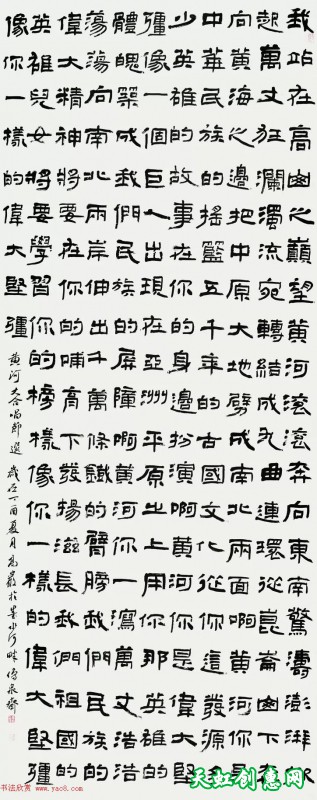 我站在高山之巔望黃河滾滾奔向東南驚濤澎湃掀
起萬丈狂瀾濁流宛轉結成九曲連環從崑崙山下奔
向黃海之邊把中原大地劈成南北兩面啊黃河你是
中華民族的搖籃五千年的古國文化從你這兒發源多
少英雄的故事在你的身邊扮演啊黃河你是偉大堅
彊像一個巨人出現在亞洲平原之上用你那英雄的
體魄築成我們民族的屏障啊黃河你一瀉萬丈浩浩
蕩蕩向南北兩岸伸出千萬條鐵的臂膀我們民族的
偉大精神將要在你的哺育下發揚滋長我們祖國的
英雄兒女將要學習你的榜樣像你一樣的偉大堅彊
像你一樣的偉大堅彊 黃河大合唱節選 歲次丁酉夏月
书法欣赏 www.yac8.com
天虹创意网